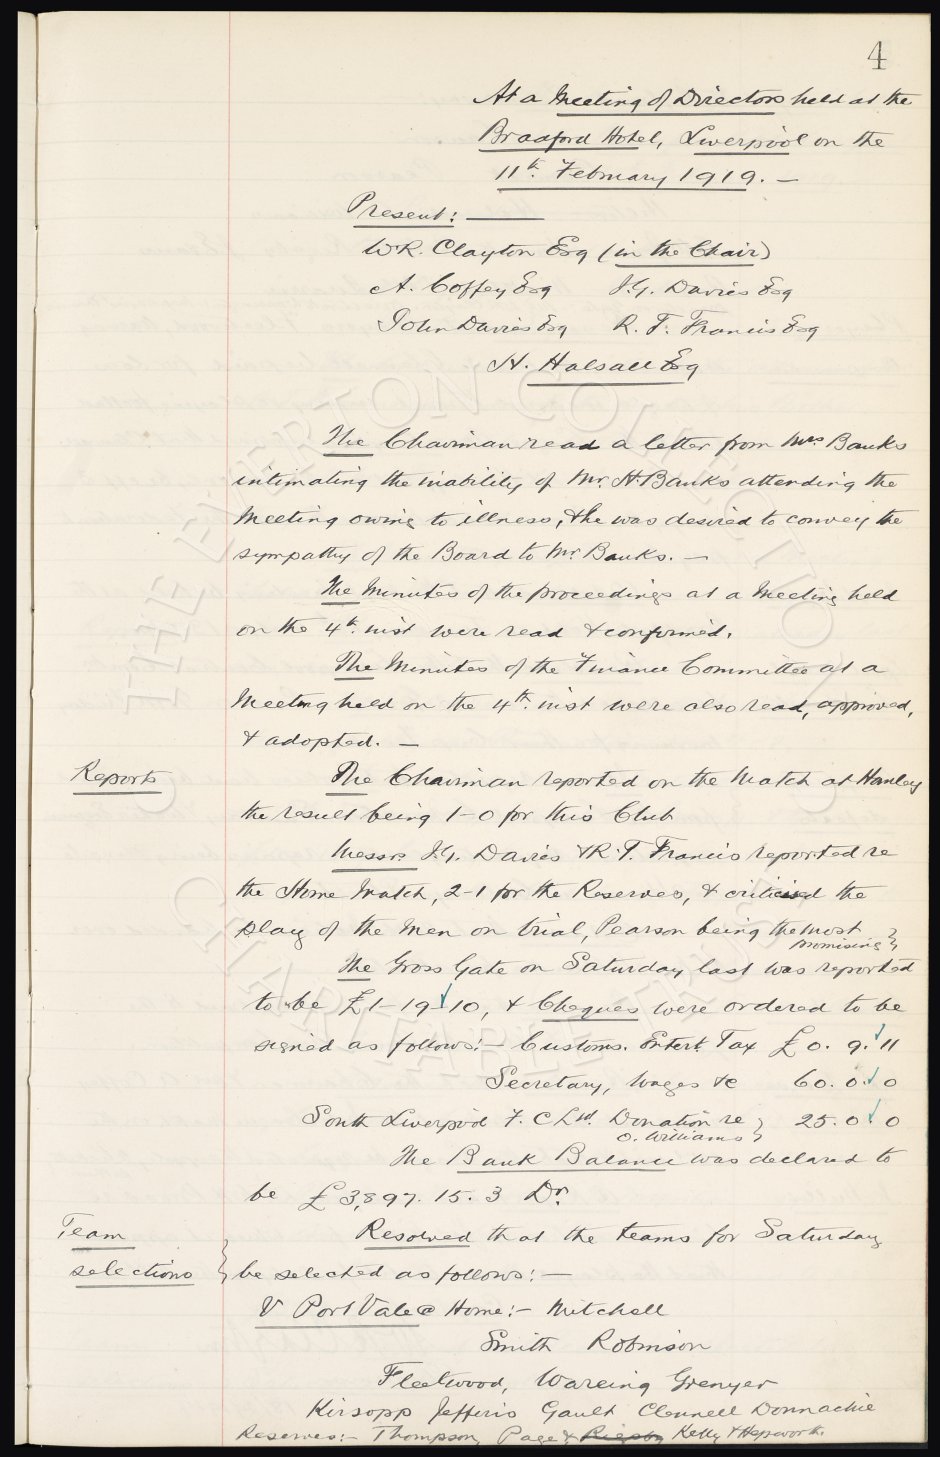 4
At a Meeting of Directors held at the
Bradford Hotel, Liverpool on the
11th. February 1919. —
Present: —
W.R. Clayton Esq (in the Chair)
A. Coffey Esq J.G. Davies Esq
John Davies Esq R. T. Francis Esq
H. Halsall Esq
The Chairman read a letter from Mrs. Banks
intimating the inability of Mr. H. Banks attending the
Meeting owing to illness, & he was desired to convey the
sympathy of the Board to Mr. Banks. —
The Minutes of the proceedings at a Meeting held
on the 4th. inst were read & confirmed.
The Minutes of the Finance Committee at a
Meeting held on the 4th. inst were also read, approved,
& adopted. —
Reports
The Chairman reported on the Match at Hanley
the result being 1-0 for this Club
Messrs J.G. Davies & R.T. Francis reported re
the Home Match, 2-1 for the Reserves, & criticised the
play of the men on trial, Pearson being the most
promising
The Gross Gate on Saturday last was reported
to be £1-19-10, & Cheques were ordered to be
signed as follows:- Customs. Entert. Tax £0. 9. 11
Secretary, Wages &c 60. 0. 0
South Liverpool F. C Ltd. Donation re 25. 0. 0
O. Williams
The Bank Balance was declared to
be £3,897. 15. 3 Dr.
Team
selections
Resolved that the teams for Saturday
be selected as follows: —
V Port Vale @ Home:- Mitchell
Smith Robinson
Fleetwood, Wareing Grenyer
Kirsopp Jefferis Gault Clennell Donnachie
Reserves:- Thompson, Page & Rigsby Kelly & Hepworth.
THE EVERTON COLLECTION CHARITABLE TRUST